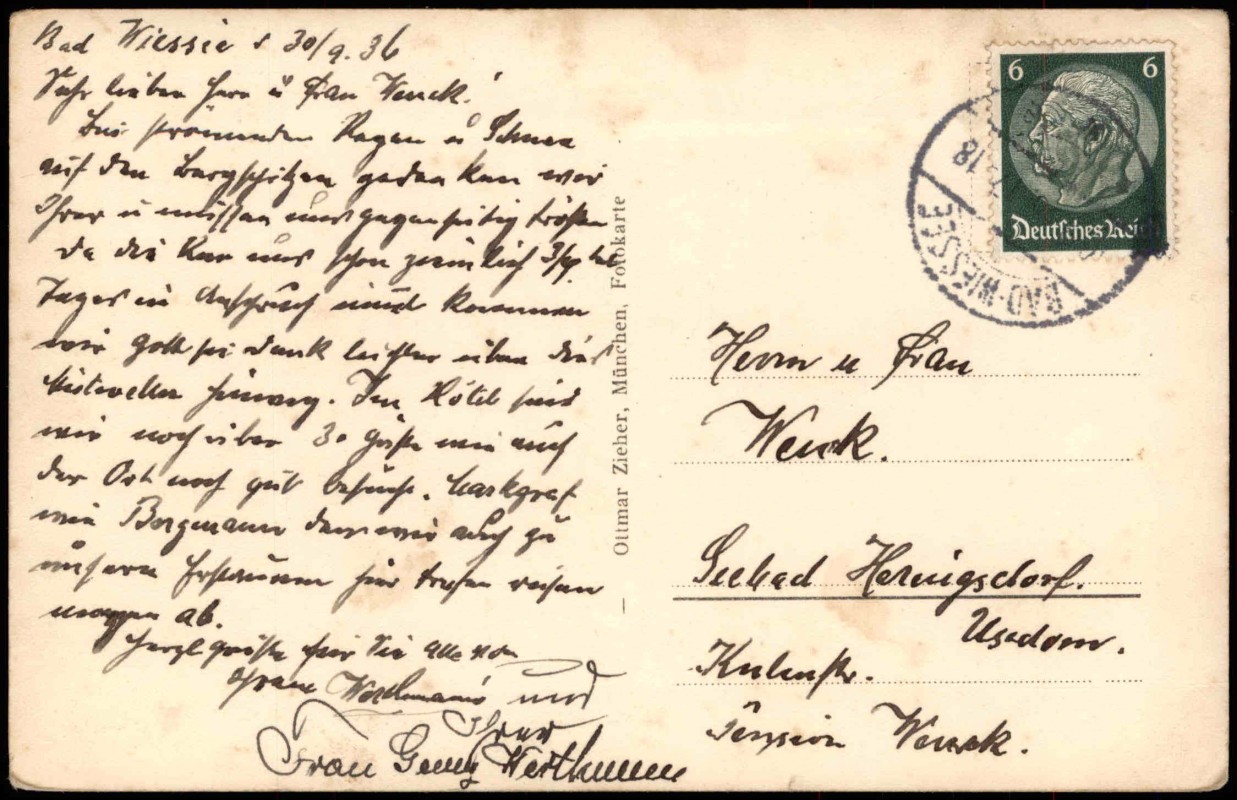 Bad Wiessee d 30/9.36
Sehr lieber Herr u Frau Wenck!
Bei strömenden Regen u Schnee
auf den Bergspitzen gedenken wir
Ihrer u müssen uns gegenseitig trösten
da die Kur uns schon ziemlich
Tages in Anspruch nimmt kommen
wir Gott sei dank leichter über das
hinweg. Im Hotel sind
wir noch über 30 Gäste wie auch
der Ort noch gut besucht.
wie Bergmann den wir auch zu
unserm Erstaunen hier trafen reisen
morgen ab.
Herzl grüße für Sie alle von
Ihrem Werthmann und
Ihrer
Frau Georg Werthmann
Ottmar Zieher, München, Fotokarte
6 6
Deutsches Reich
18
BAD-WIESSEE
Herrn u Frau
Wenck.
Seebad Heringsdorf.
Usedom.
Kulmstr.
Pension Wenck.